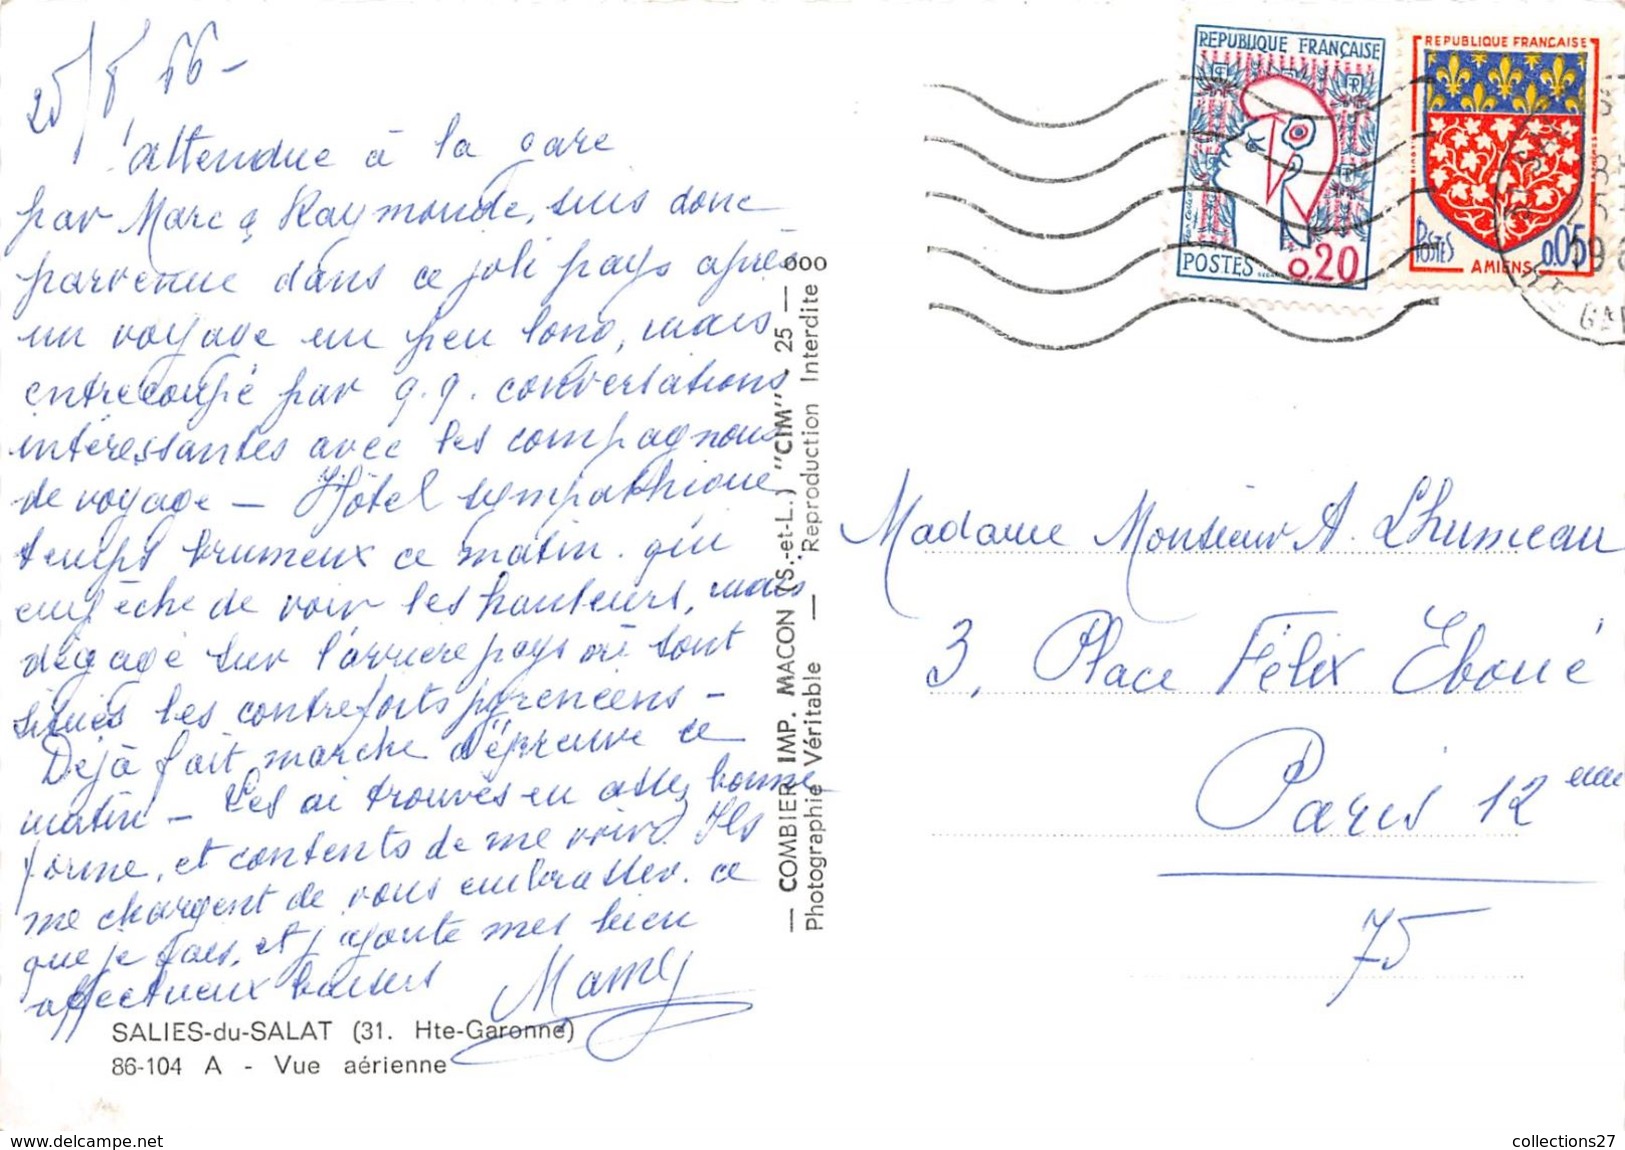 25/8 66 -
attendue à la gare
par Marc & Raymonde, suis donc
parvenue dans ce joli pays après
un voyage un peu long, mais
entrecoupé par q.q. conversations
intéressantes avec les compagnons
de voyage — Hôtel sympathique
temps brumeux ce matin. qui
empêche de voir les hauteurs, mais
dégagé sur l'arrière pays où sont
situés les contreforts pyrénéens -
Déjà fait marche d'épreuve ce
matin - Les ai trouvés en assez bonne
forme, et contents de me voir. Ils
me chargent de vous embrasser. ce
que je fais, et j'ajoute mes bien
affectueux baisers Mamy
SALIES-du-SALAT (31. Hte-Garonne)
86-104 A - Vue aérienne
— COMBIER IMP. MACON (S.-et-L.) "CIM" 25 — 000
Photographie Véritable — Reproduction Interdite
REPUBLIQUE FRANÇAISE
POSTES 0.20
REPUBLIQUE FRANCAISE
POSTES 0.05
AMIENS
Madame Monsieur A. Lhumeau
3, Place Félix Eboué
Paris 12 eme
75
www.delcampe.net
collections27